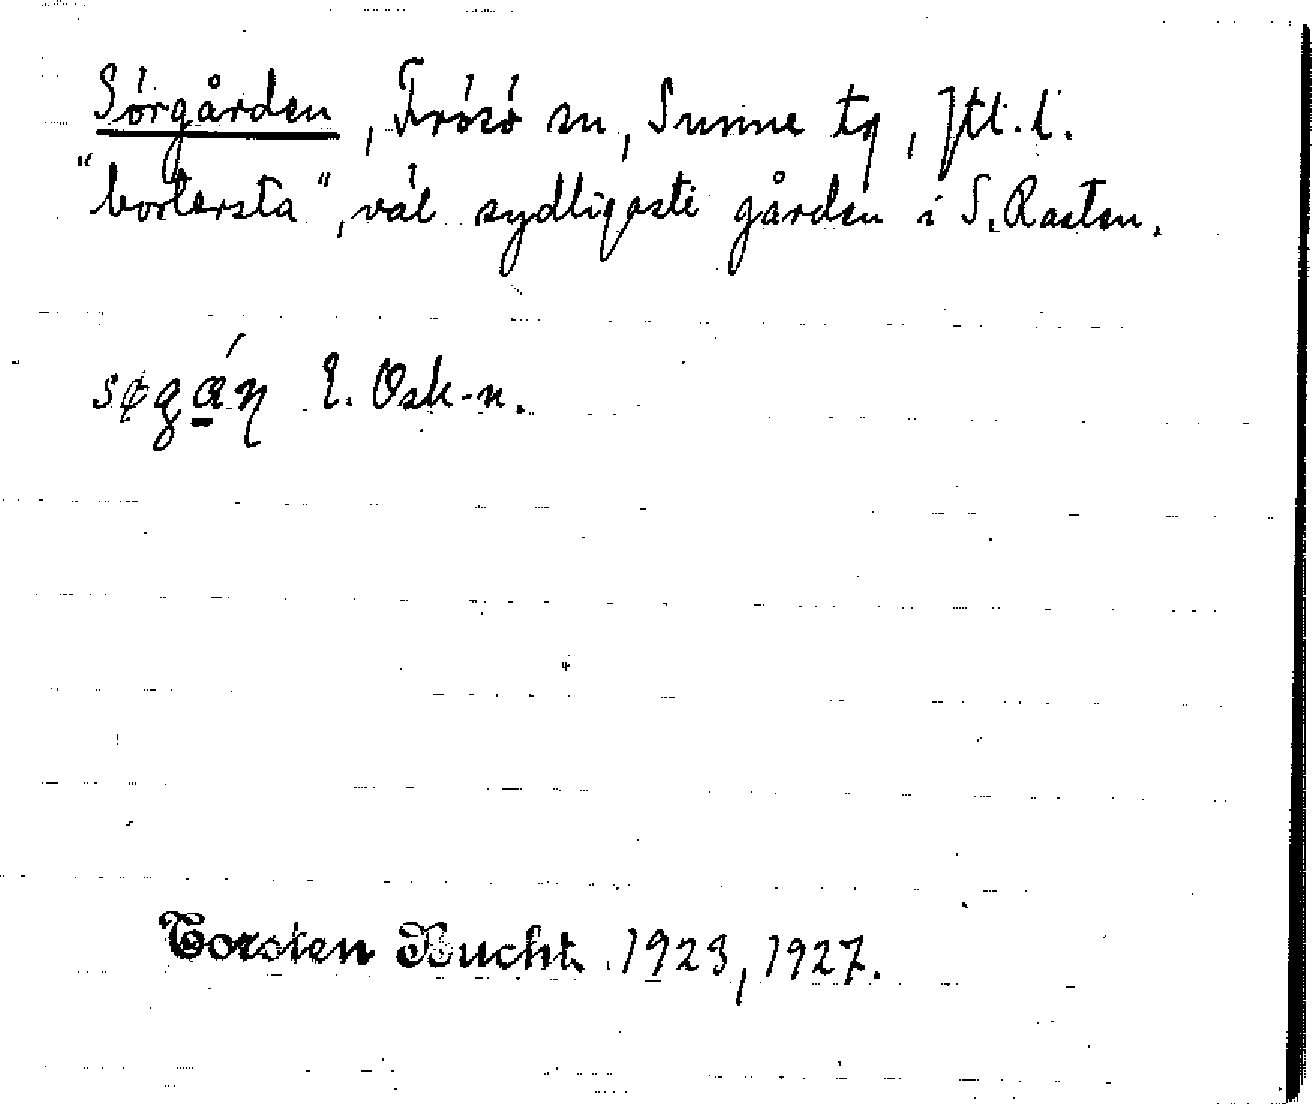 Sörgården, Frösö sn, Sunne tg, Jtl. l.
"bortersta", väl sydligaste gården i S. Rasten.
søgáṇ E. Osk-n.
Torsten Bucht. 1923, 1927.